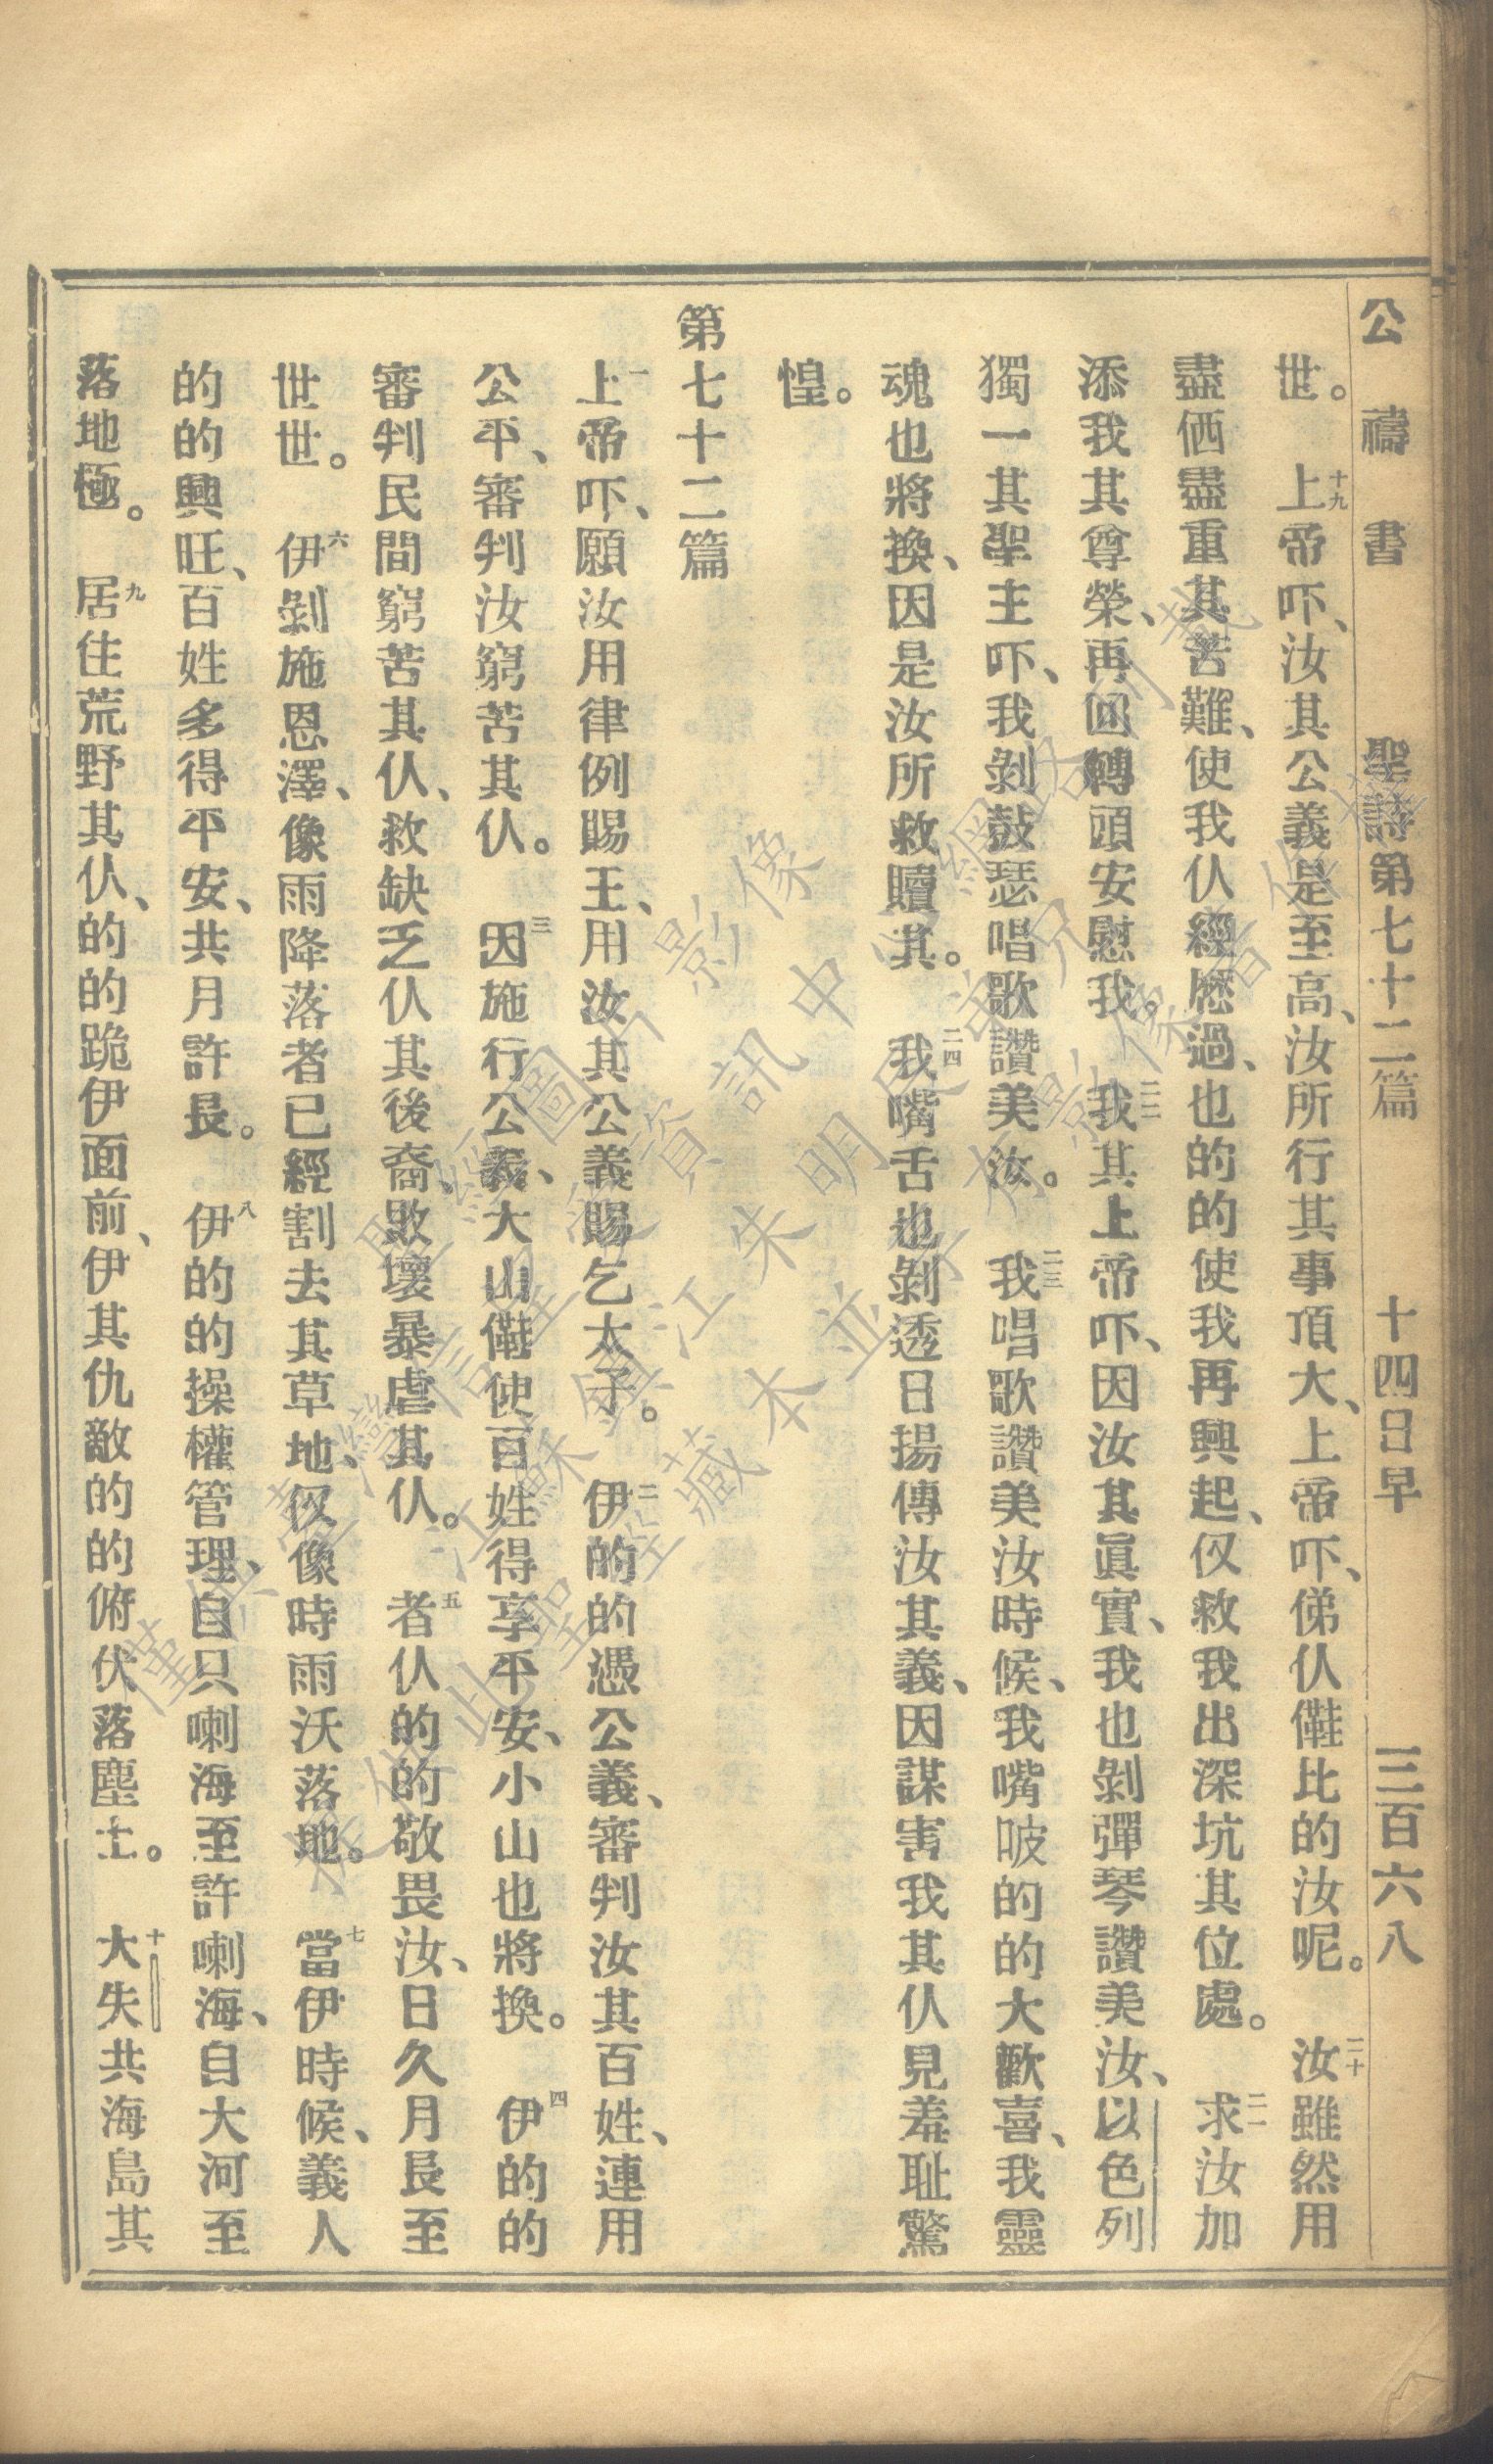 公禱書　聖詩第七十二篇　十四日早　三百六八
世。　十九上帝吓、汝其公義是至高、汝所行其事頂大、上帝吓、俤仈㒕比的汝呢。　二十汝雖然用
盡価盡重其苦難、使我仈經歷過、也的的使我再興起、仅救我出深坑其位處。　二一求汝加
添我其尊榮、再回轉頭安慰我。　二二我其上帝吓、因汝其眞實、我也剝彈琴讚美汝、以色列
獨一其聖主吓、我剝鼓瑟唱歌讚美汝。　二三我唱歌讚美汝時候、我嘴㕰的的大歡喜、我靈
魂也將換、因是汝所救贖其。　二四我嘴舌也剝透日揚傳汝其義、因謀害我其仈見羞耻驚
惶。
第七十二篇
一上帝吓、願汝用律例賜王、用汝其公義賜乞太子。　二伊的的憑公義、審判汝其百姓、連用
公平、審判汝窮苦其仈。　三因施行公義、大山㒕使百姓得享平安、小山也將換。　四伊的的
審判民間窮苦其仈、救缺乏仈其後裔、敗壞暴虐其仈。　五者仈的的敬畏汝、日久月長至
世世。　六伊剝施恩澤、像雨降落者已經割去其草地、仅像時雨沃落地。　七當伊時候、義人
的的興旺、百姓多得平安、共月許長。　八伊的的操權管理、自只喇海至許喇海、自大河至
落地極。　九居住荒野其仈、的的跪伊面前、伊其仇敵的的俯伏落塵土。　十大失共海島其